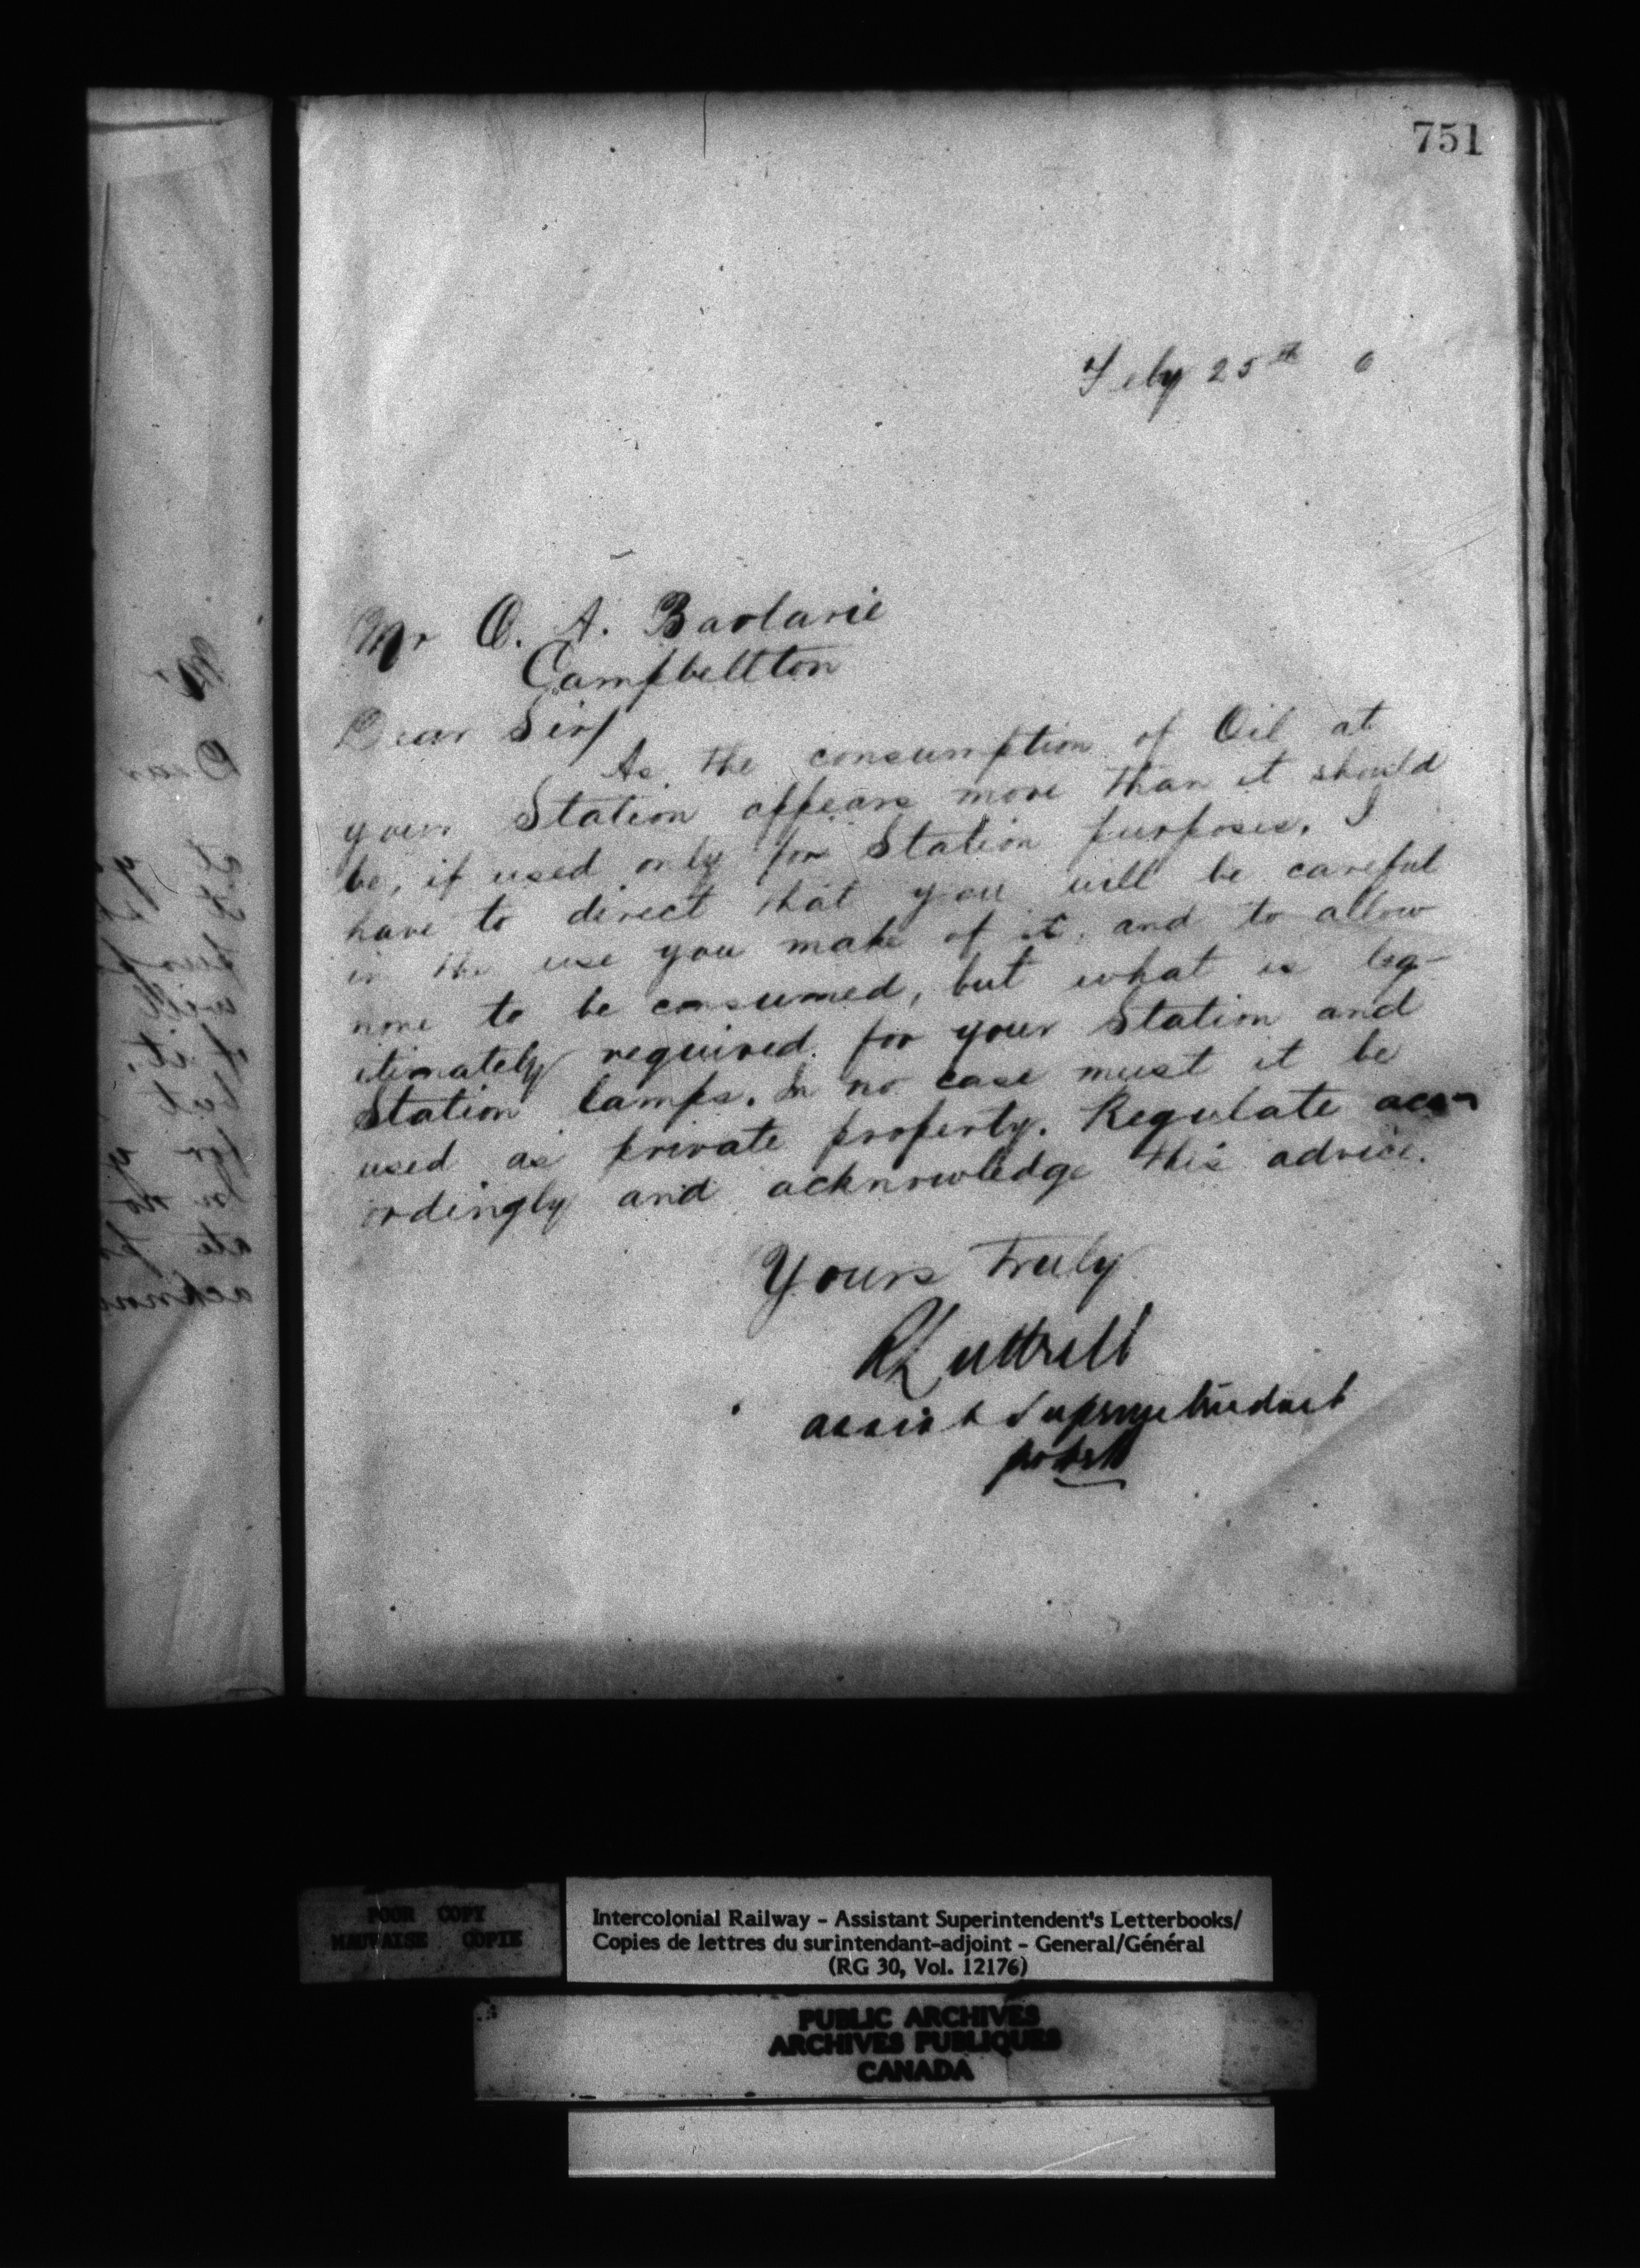 751
Feby 25th 6
Mr O. A. Barlarie
Campbellton
Dear Sir/
As the consumption of Oil at
your Station appears more than it should
be, if used only for Station purposes, I
have to direct that you will be careful
in the use you make of it, and to allow
none to be consumed, but what is leg-
itimately required for your Station and
Station lamps. In no case must it be
used as private property. Regulate acc-
ordingly and acknowledge this advice.
Yours Truly
R Luttrell
Assist Superintendent
POOR COPY
MAUVAISE COPIE
Intercolonial Railway - Assistant Superintendent's Letterbooks/
Copies de lettres du surintendant-adjoint - General/Général
(RG 30, Vol. 12176)
PUBLIC ARCHIVES
ARCHIVES PUBLIQUES
CANADA